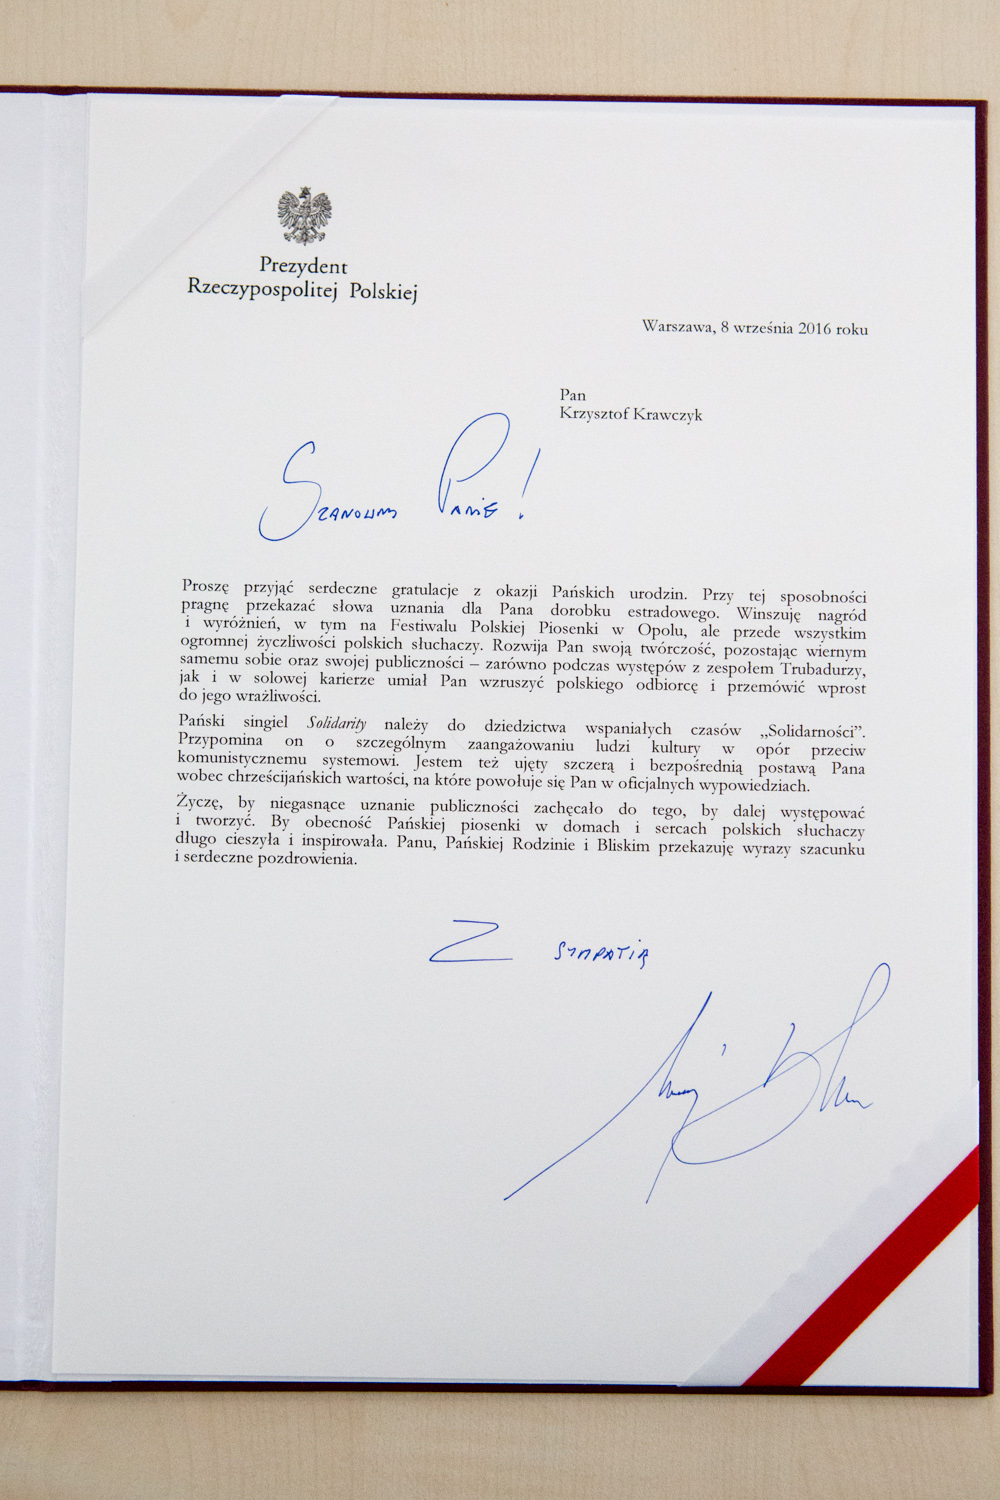 Prezydent
Rzeczypospolitej Polskiej
Warszawa, 8 września 2016 roku
Pan
Krzysztof Krawczyk
Szanowny Panie!
Proszę przyjąć serdeczne gratulacje z okazji Pańskich urodzin. Przy tej sposobności
pragnę przekazać słowa uznania dla Pana dorobku estradowego. Winszuję nagród
i wyróżnień, w tym na Festiwalu Polskiej Piosenki w Opolu, ale przede wszystkim
ogromnej życzliwości polskich słuchaczy. Rozwija Pan swoją twórczość, pozostając wiernym
samemu sobie oraz swojej publiczności – zarówno podczas występów z zespołem Trubadurzy,
jak i w solowej karierze umiał Pan wzruszyć polskiego odbiorcę i przemówić wprost
do jego wrażliwości.
Pański singiel Solidarity należy do dziedzictwa wspaniałych czasów „Solidarności”.
Przypomina on o szczególnym zaangażowaniu ludzi kultury w opór przeciw
komunistycznemu systemowi. Jestem też ujęty szczerą i bezpośrednią postawą Pana
wobec chrześcijańskich wartości, na które powołuje się Pan w oficjalnych wypowiedziach.
Życzę, by niegasnące uznanie publiczności zachęcało do tego, by dalej występować
i tworzyć. By obecność Pańskiej piosenki w domach i sercach polskich słuchaczy
długo cieszyła i inspirowała. Panu, Pańskiej Rodzinie i Bliskim przekazuję wyrazy szacunku
i serdeczne pozdrowienia.
Z sympatią